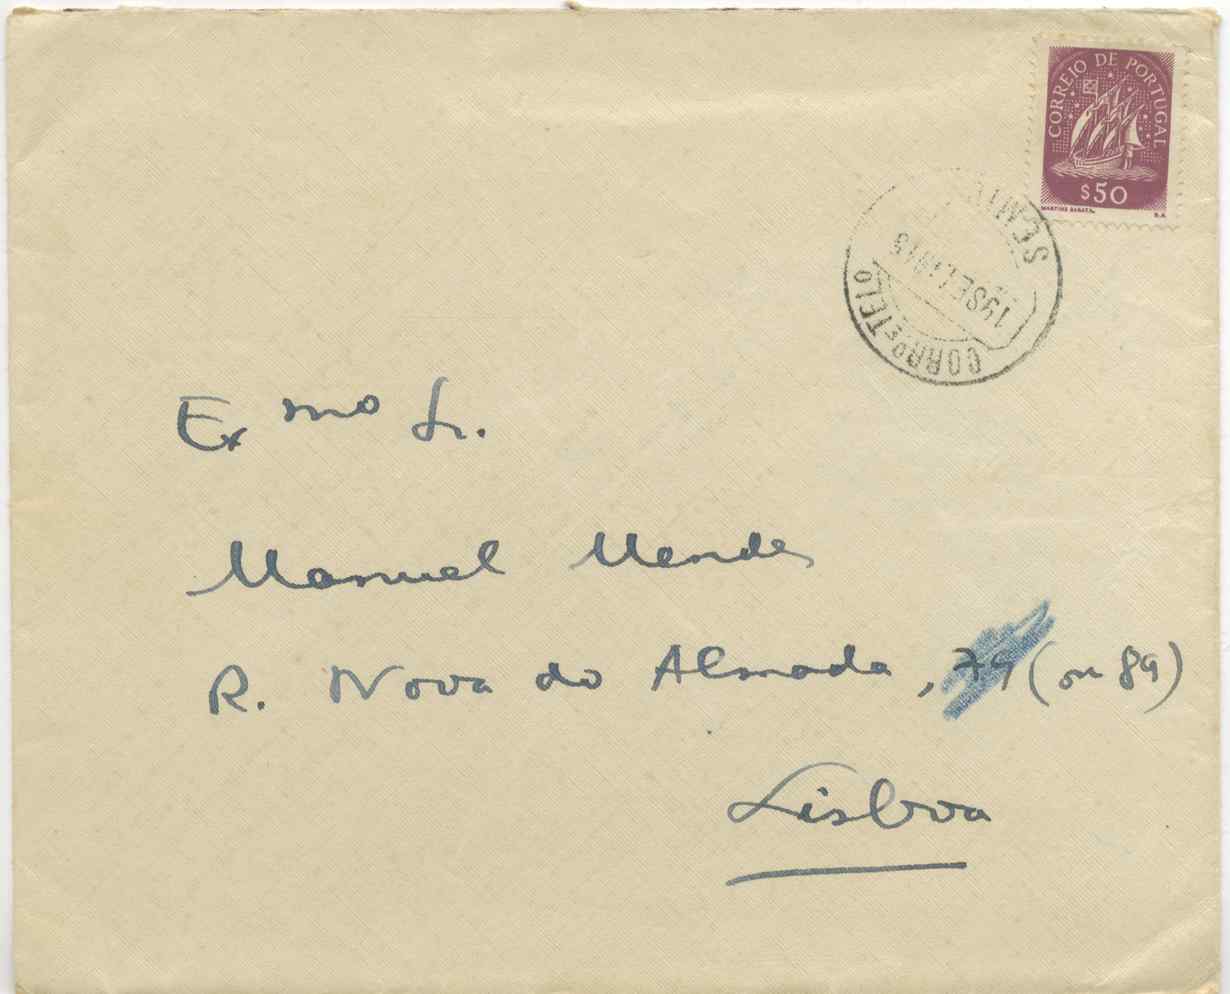 CORREIO DE PORTUGAL
$50
MARTINS BARATA
CORR.º E TELº
19 SET.
Ex mo Sr.
Manuel Mendes
R. Nova do Almada, 79 (ou 89)
Lisboa